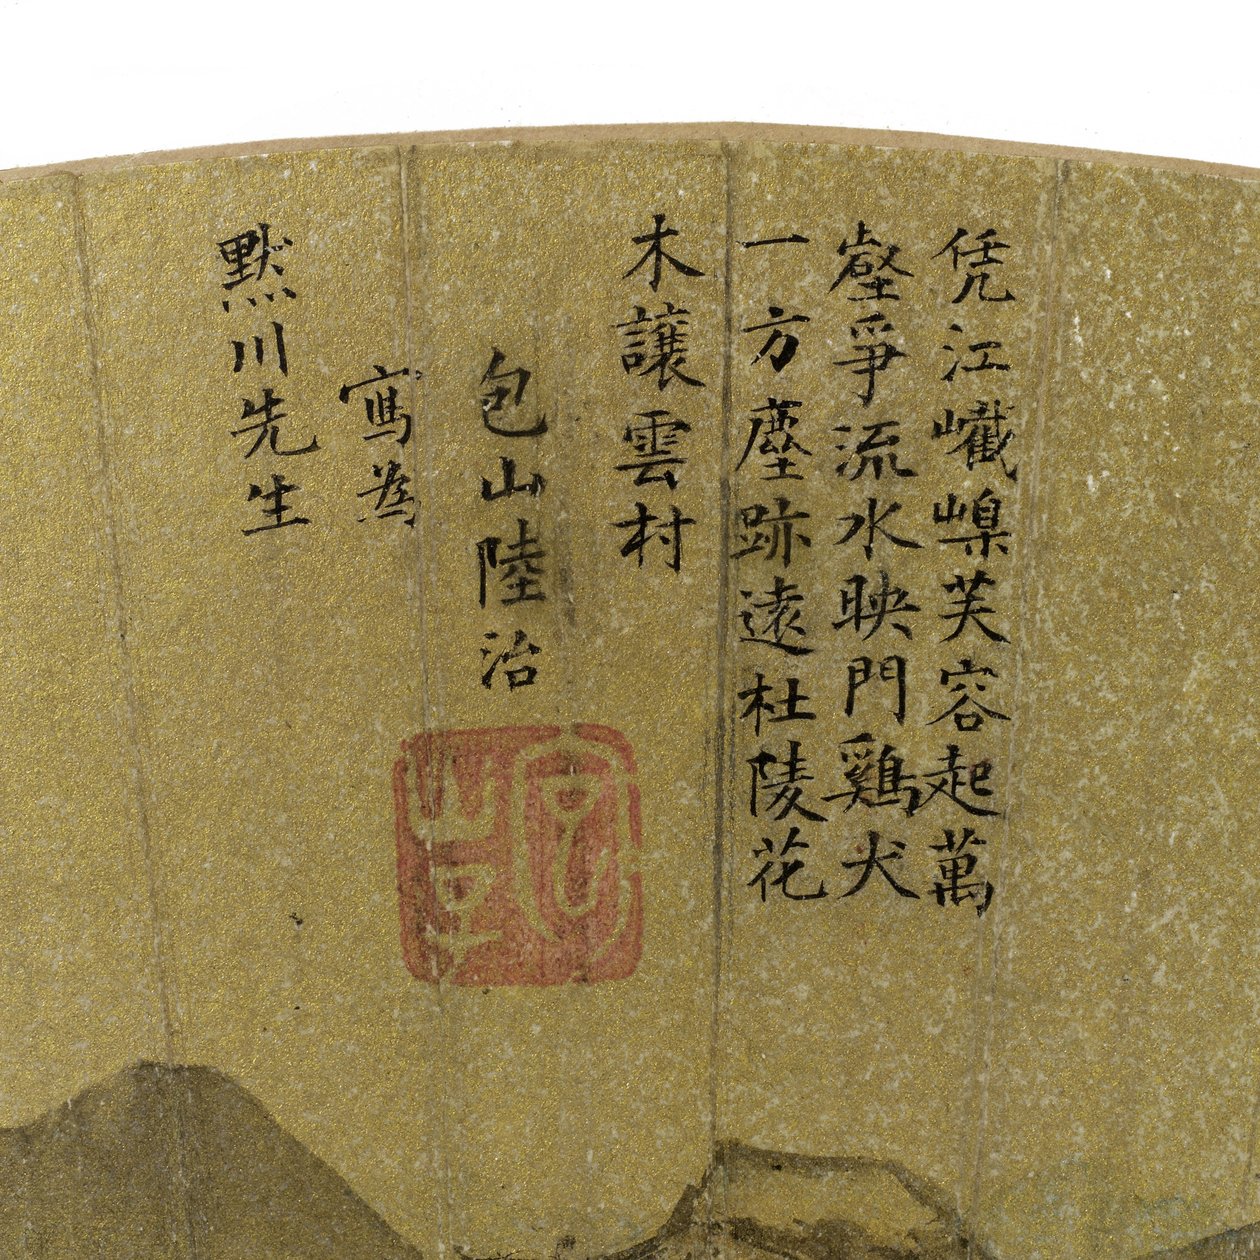 凭江巀嵲芙容起萬
壑爭流水映門鷄犬
一方塵跡遠杜陵花
木讓雲村
包山陸治
寫為
默川先生